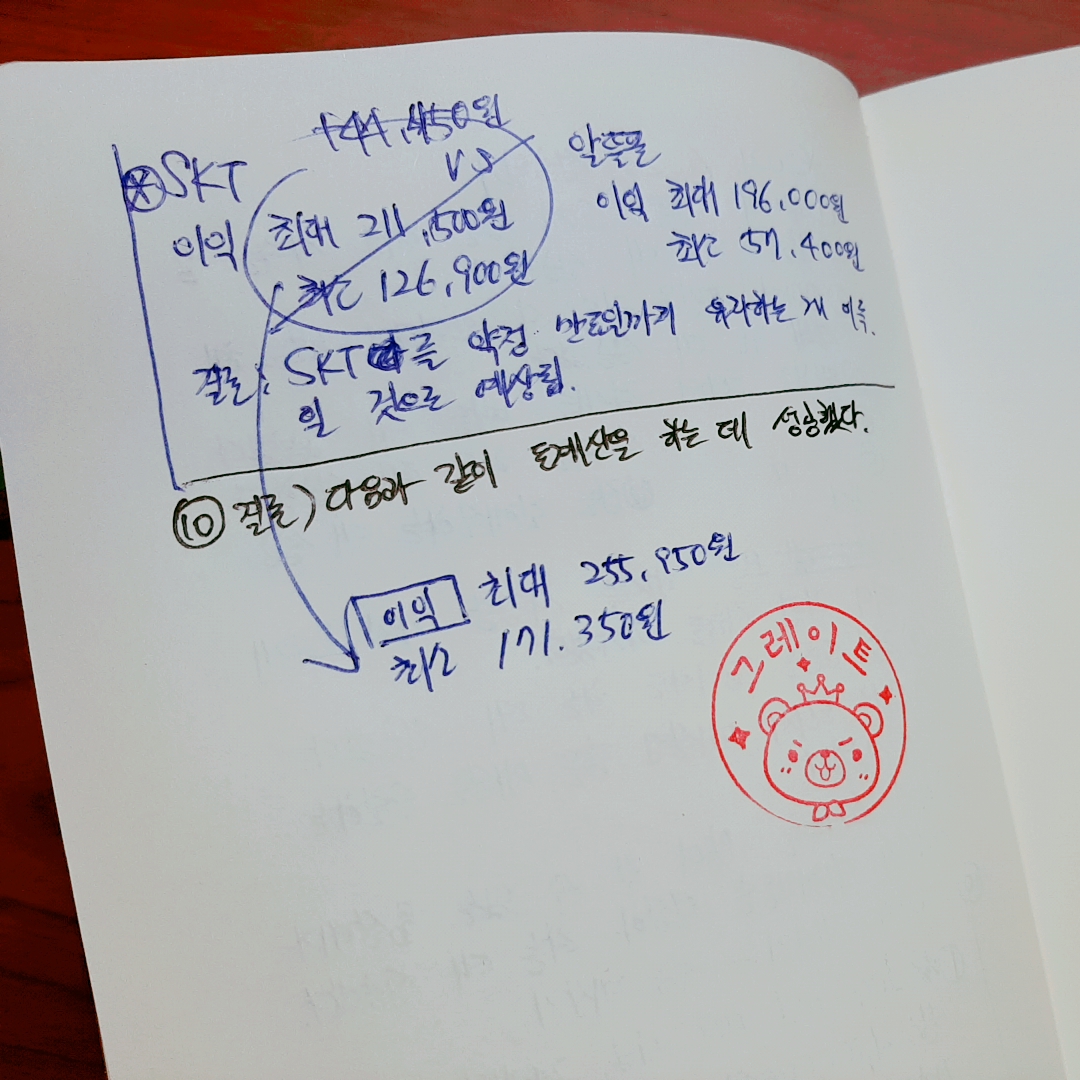 +44,450원
⊛SKT
VS
알뜰폰
이익 최대 211,500원
최소 126,900원
이익 최대 196,000원
최소 57,400원
결론: SKT 를 약정 만료일까지 유지하는 게 이득
일 것으로 예상됨.
⑩ 결론) 다음과 같이 돈계산을 하는 데 성공했다.
이익 최대 255,950원
최소 171.350원
그레이트